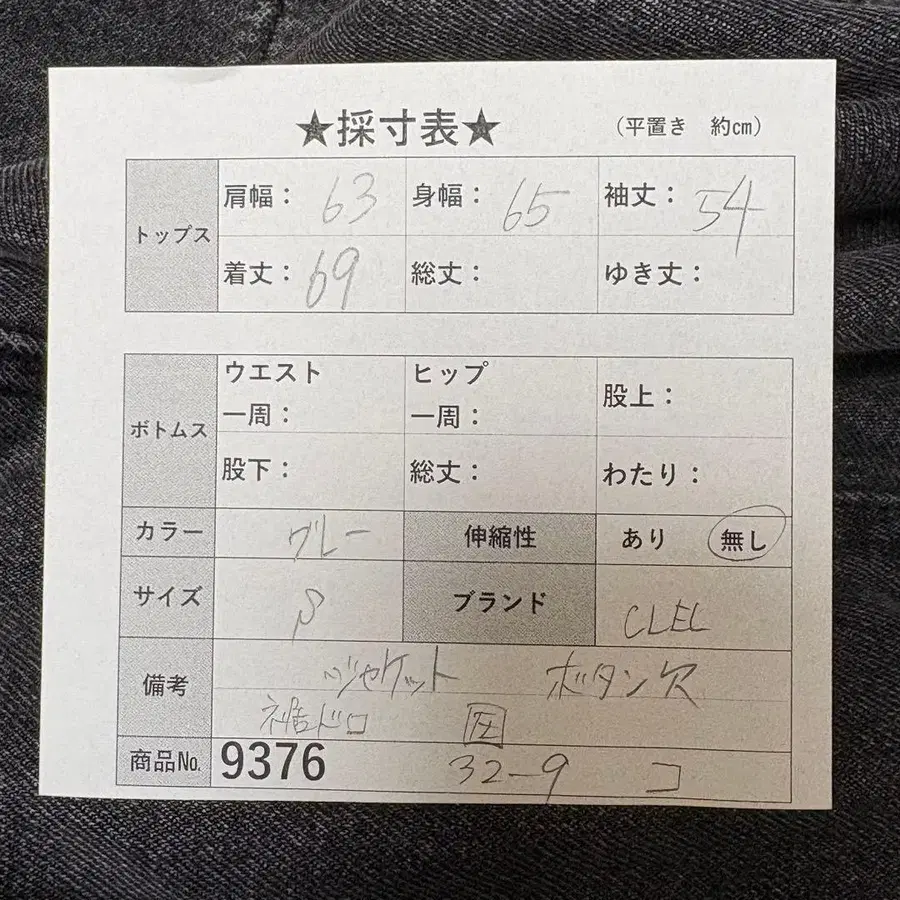 ★採寸表★ （平置き 約cm）
トップス
肩幅： 63 身幅： 65 袖丈： 54
着丈： 69 総丈： ゆき丈：
ボトムス
ウエスト一周： ヒップ一周： 股上：
股下： 総丈： わたり：
カラー グレー 伸縮性 あり 無し
サイズ S ブランド CLEL
備考 ジャケット ボタン欠
裾ドロ 圧
商品No. 9376 32-9 コ